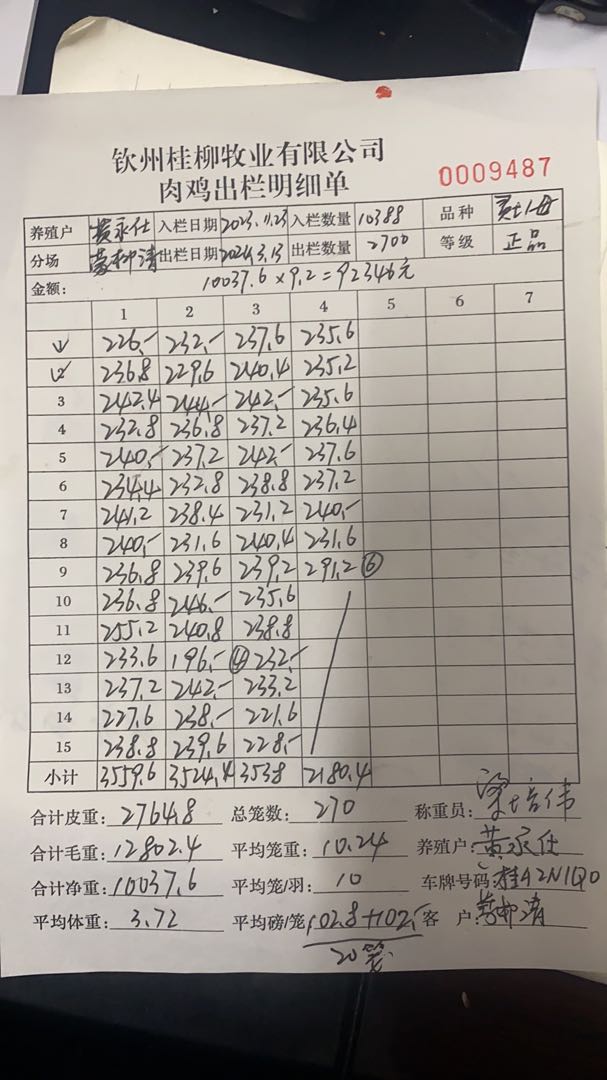 钦州桂柳牧业有限公司
肉鸡出栏明细单
0009487
养殖户 黄永仕 入栏日期 2023.11.23 入栏数量 10388 品种
分场 出栏日期 2024.3.13 出栏数量 2700 等级 正品
金额: 10037.6×9.2=92346元
1 2 3 4 5 6 7
1 226.- 232.- 237.6 235.6
2 236.8 229.6 240.4 235.2
3 242.4 244.- 242.- 235.6
4 232.8 236.8 237.2 236.4
5 240.- 237.2 242.- 237.6
6 234.4 232.8 238.8 237.2
7 241.2 238.4 231.2 240.-
8 240.- 231.6 240.4 231.6
9 236.8 239.6 239.2 291.2 ⑥
10 236.8 246.- 235.6
11 255.2 240.8 238.8
12 233.6 196.- ④ 232.-
13 237.2 242.- 233.2
14 227.6 238.- 221.6
15 238.8 239.6 228.-
小计 3559.6 3524.4 3538 2180.4
合计皮重: 2764.8 总笼数: 270 称重员: 梁培伟
合计毛重: 12802.4 平均笼重: 10.24 养殖户: 黄永仕
合计净重: 10037.6 平均笼/羽: 10 车牌号码: 桂A2N1Q0
平均体重: 3.72 平均磅/笼: 102.8+102.- 客 户:
20笼